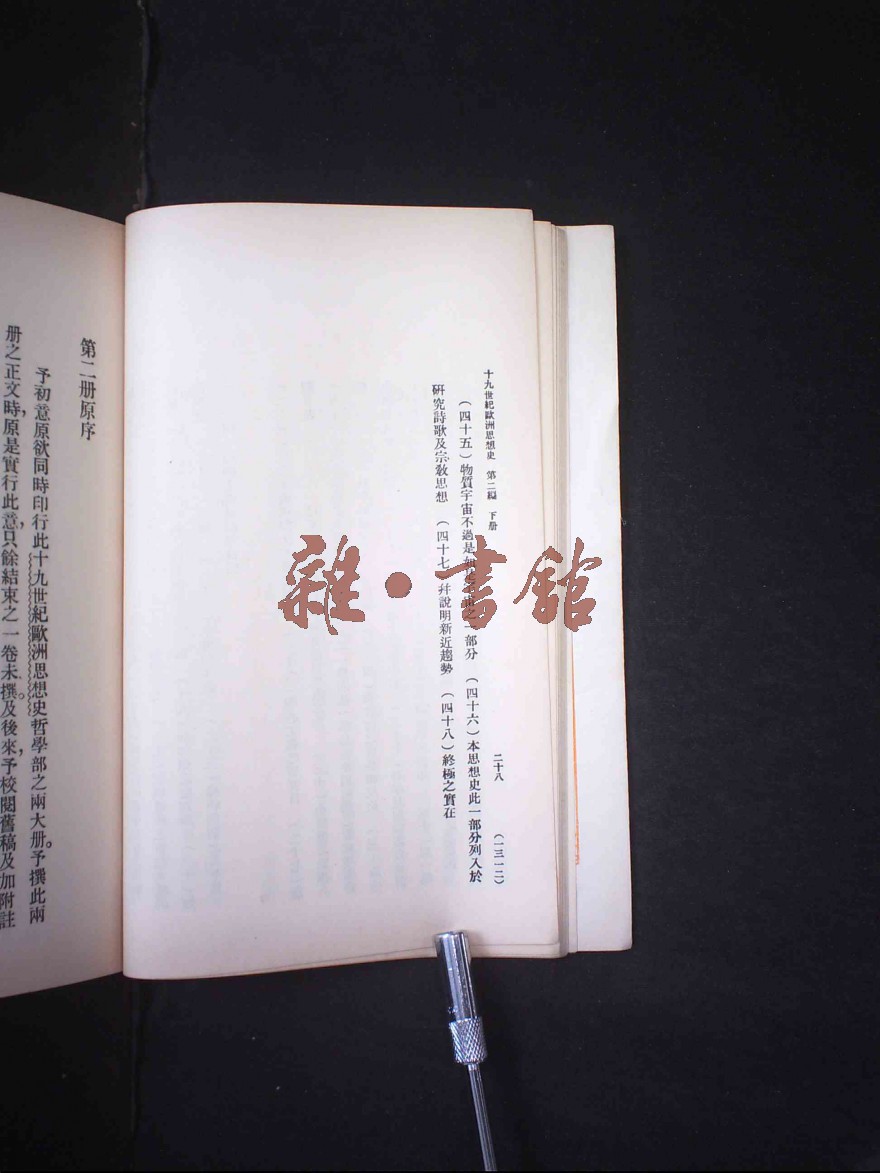 十九世紀歐洲思想史 第二編 下册 二十八 (一三一二)
(四十五)物質宇宙不過是 之一部分 (四十六)本思想史此一部分列入於
研究詩歌及宗教思想 (四十七)幷說明新近趨勢 (四十八)終極之實在
第二册原序
予初意原欲同時印行此十九世紀歐洲思想史哲學部之兩大册。予撰此兩
册之正文時,原是實行此意,只餘結束之一卷未撰。及後來,予校閱舊稿及加附註
雜·書館